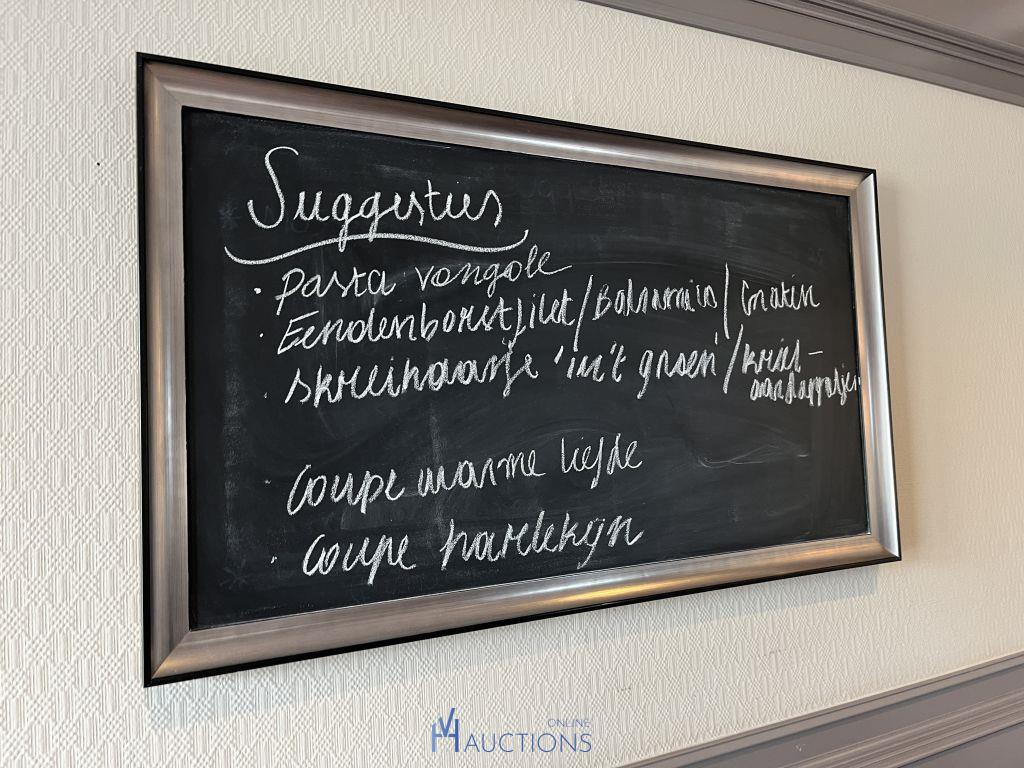 Suggesties
· pasta vongole
· Eendenborstfilet/Balsamico/Gratin
· skreihaasje 'in't groen'/kriel-
aardappeltjes
· Coupe warme liefde
· Coupe harlekijn
VH AUCTIONS
ONLINE